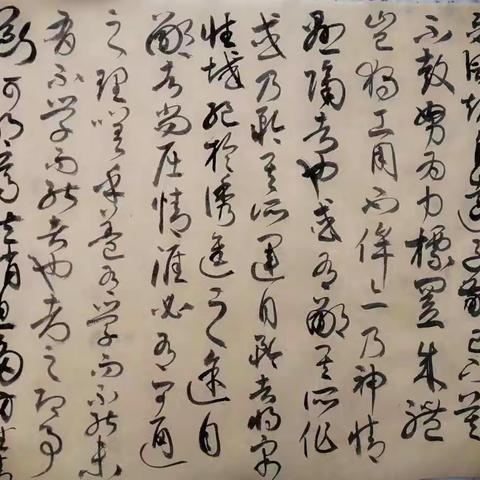 風規自遠子敬已下莫
不鼓努為力標置成體
豈獨工用不侔亦乃神情
懸隔者也或有鄙其所作
或乃矜其所運自矜者將窮
性域絕於誘進之途自
鄙者尚屈情涯必有可通
之理嗟乎蓋有學而不能未
有不學而能者也考之即事
斷可明焉然消息多方性情